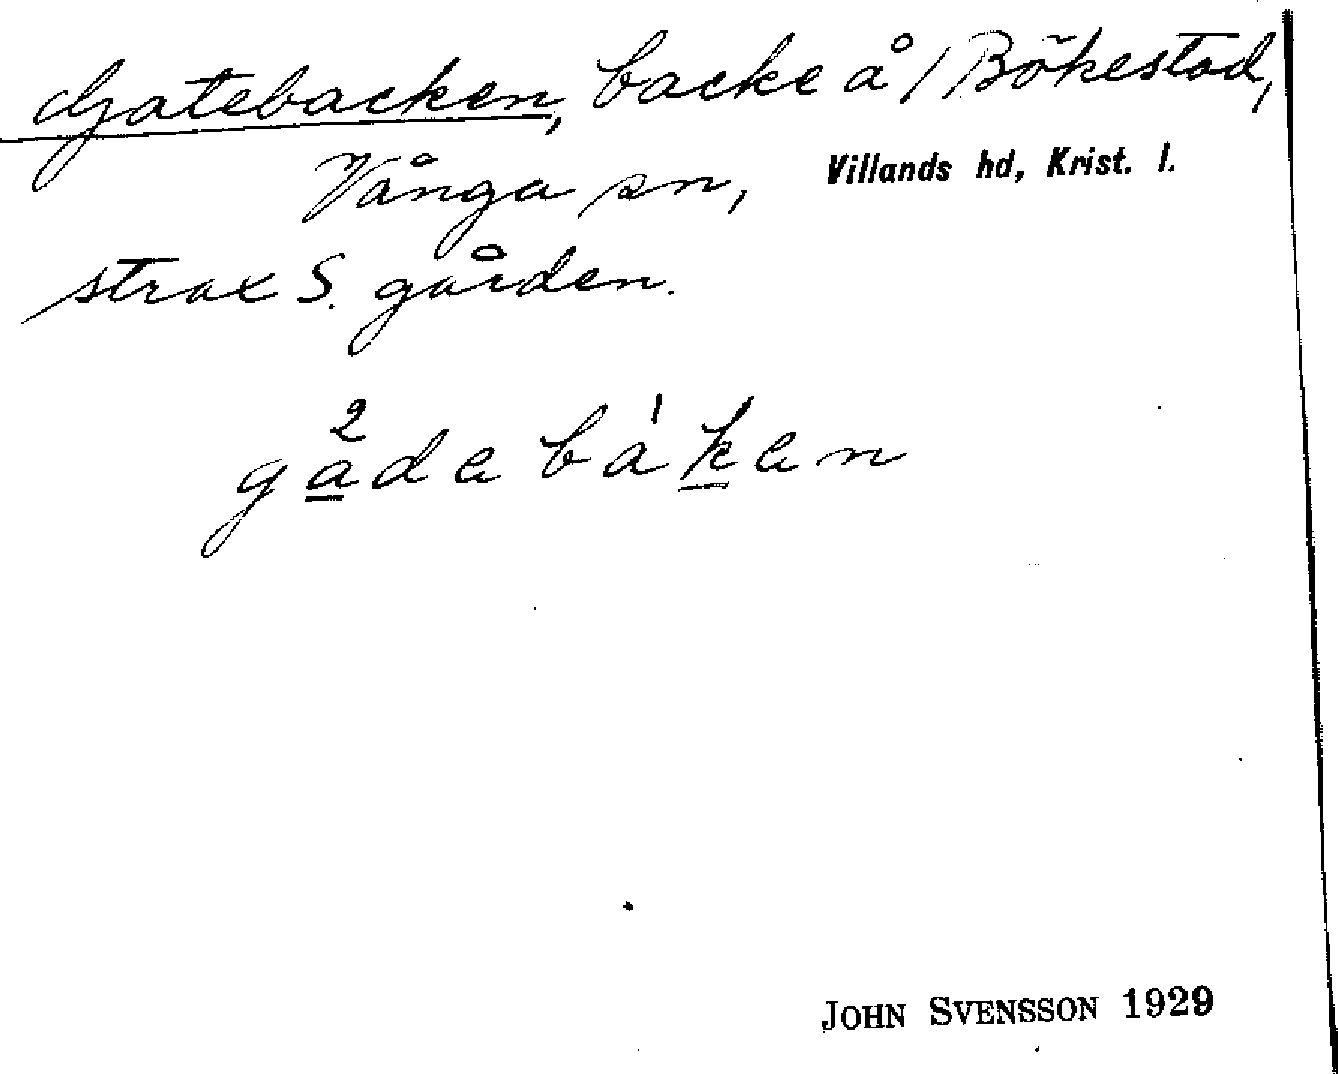 Gatebacken, backe å / Bökestad,
Vånga sn, Villands hd, Krist. l.
strax S. gården.
gadebaken
JOHN SVENSSON 1929